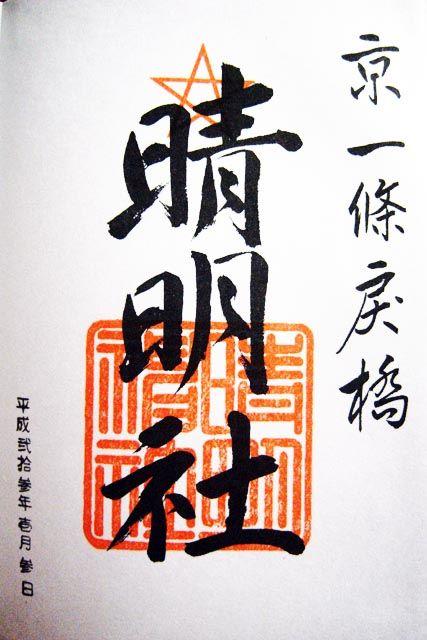 京一條戻橋
晴明社
平成弐拾参年壱月参日